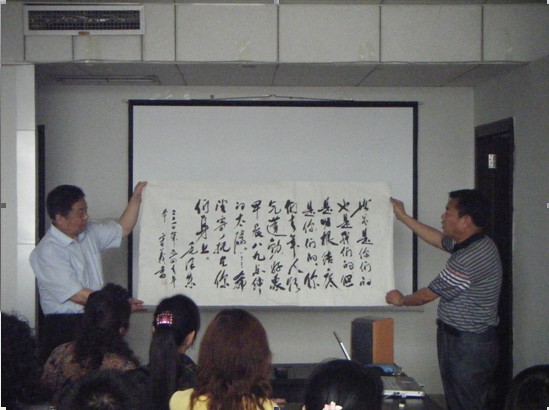 世界是你们的
也是我们的但
是归根结底
是你们的你
们青年人朝
气蓬勃好象
早晨八九点钟
的太阳……希
望寄托在你
们身上
毛泽东